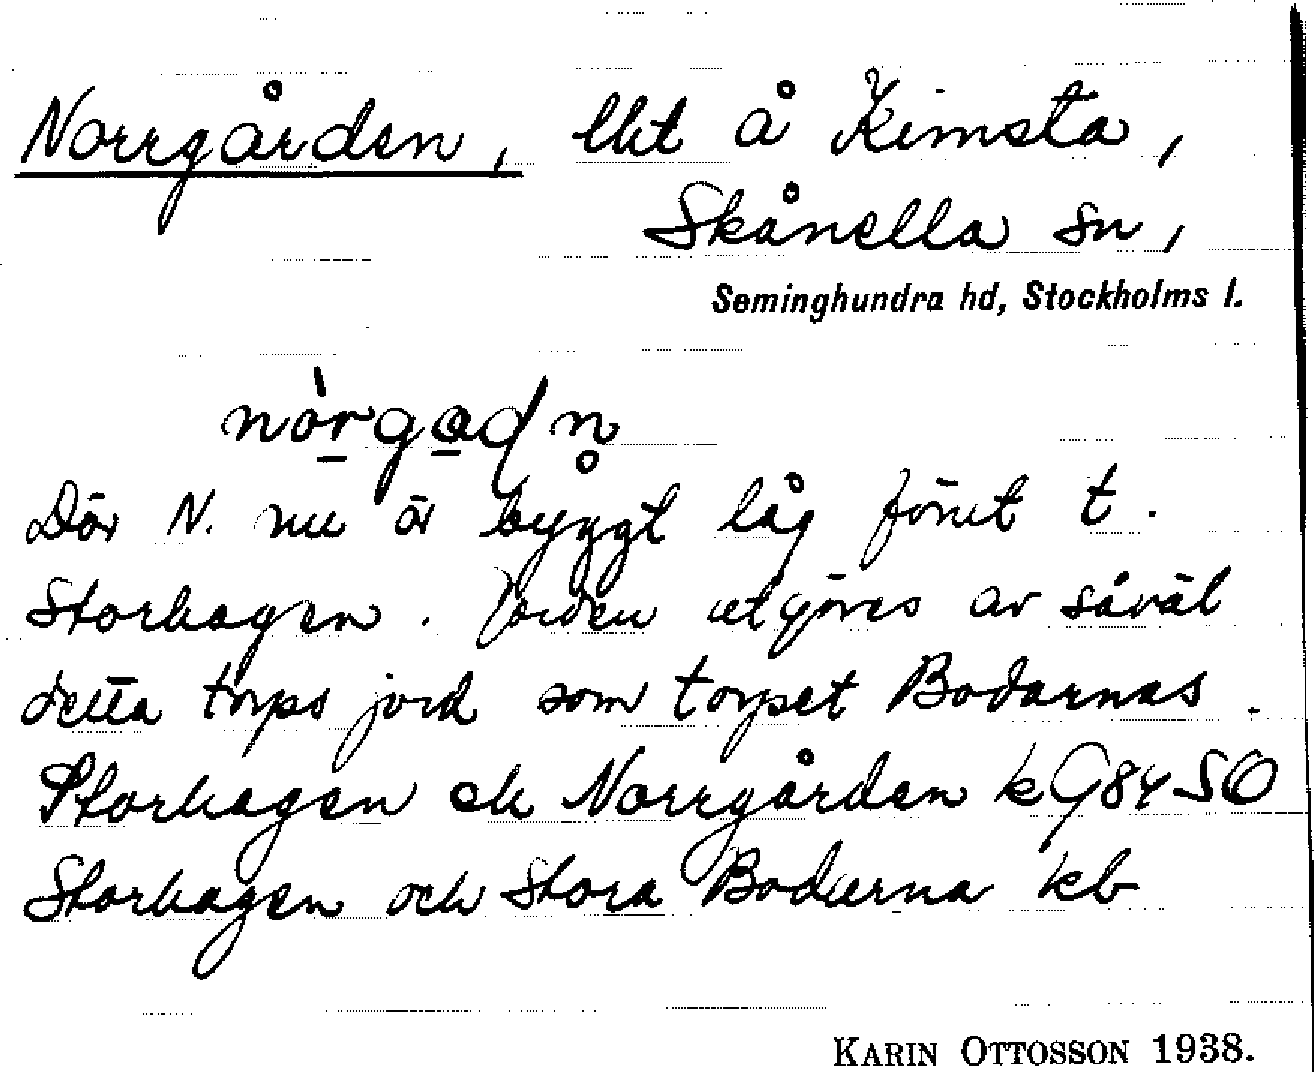 Norrgården, lht å Kimsta,
Skånella sn,
Seminghundra hd, Stockholms l.
nòrgadn̥
Där N. nu är byggt låg förut t.
Storhagen. Jorden utgöres av såväl
detta torps jord som torpet Bodarnas.
Storhagen och Norrgården k G84SO
Storhagen och Stora Bodarna kb
KARIN OTTOSSON 1938.